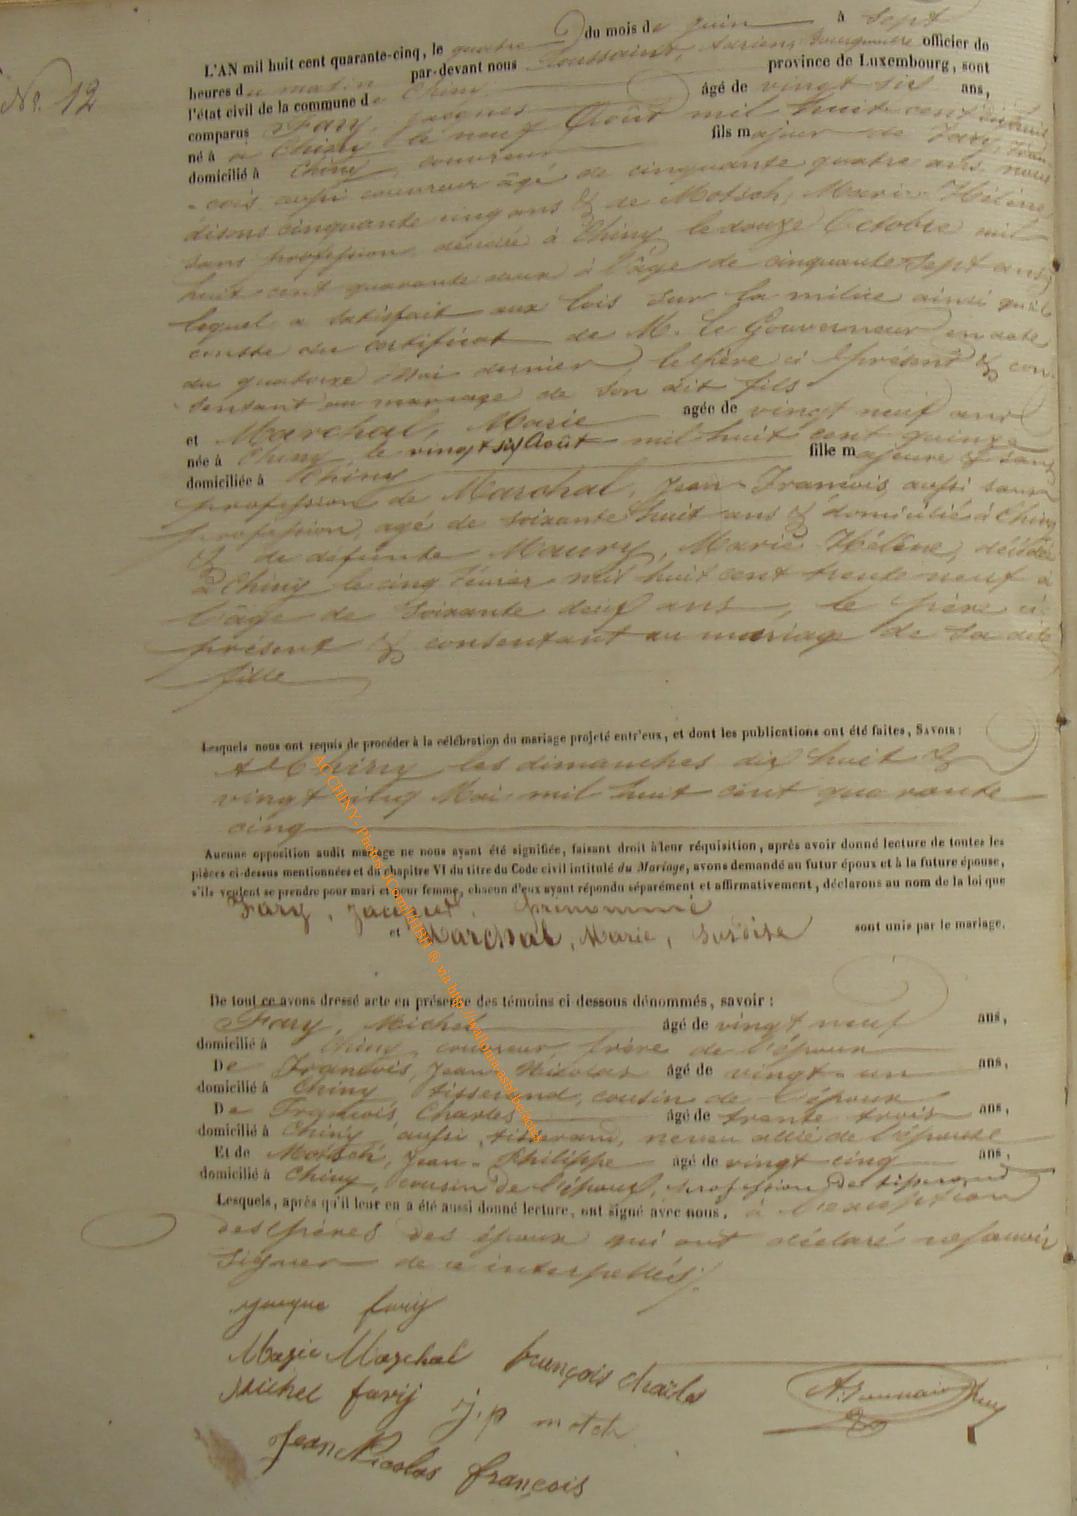 N°. 12
L'AN mil huit cent quarante-cinq, le quatre du mois de juin à sept
heures du matin par-devant nous Toussaint, Adrien, Bourgmestre officier de
l'état civil de la commune de Chiny province de Luxembourg, sont
comparus Fary, Jacques âgé de vingt six ans,
né à à Chiny le neuf Août mil huit cent dix huit
domicilié à Chiny, couvreur fils majeur de Fary, Fran-
-cois aussi couvreur âgé de cinquante quatre ans, nous
disons cinquante cinq ans & de Motsch, Marie-Hélène,
sans profession, décédée à Chiny le douze Octobre mil
huit cent quarante deux à l'âge de cinquante sept ans,
lequel a satisfait aux lois sur la milice ainsi qu'il
conste du certificat de M. Le Gouverneur en date
du quatorze Mai dernier, le père ci présent & con-
sentant au mariage de son dit fils
et Marchal, Marie agée de vingt neuf ans
née à Chiny le vingt six Août mil huit cent quinze
domiciliée à Chiny fille majeure & sans
profession de Marchal, Jean-François aussi sans
profession, agé de soixante huit ans & domicilié à Chiny
& de défunte Maury, Marie Hélène, décédée
à Chiny le cinq Février mil huit cent trente neuf à
l'âge de soixante ans, le père ci-
présent & consentant au mariage de sa dite
fille
Lesquels nous ont requis de procéder à la célébration du mariage projeté entr'eux, et dont les publications ont été faites, SAVOIR :
A Chiny les dimanches dix huit &
vingt cinq Mai mil huit cent quarante
cinq
Aucune opposition audit mariage ne nous ayant été signifiée, faisant droit à leur réquisition, après avoir donné lecture de toutes les
pièces ci-dessus mentionnées et du chapitre VI du titre du Code civil intitulé du Mariage, avons demandé au futur époux et à la future épouse,
s'ils veulent se prendre pour mari et pour femme, chacun d'eux ayant répondu séparément et affirmativement, déclarons au nom de la loi que
Fary, Jacques, prénommé
et Marchal, Marie, susdite sont unis par le mariage.
De tout ce avons dressé acte en présence des témoins ci dessous dénommés, savoir :
Fary, Michel âgé de vingt neuf ans,
domicilié à Chiny, couvreur, frère de l'époux
De François, Jean Nicolas âgé de vingt-un ans,
domicilié à Chiny, tisserand, cousin de l'époux
De François Charles âgé de trente trois ans,
domicilié à Chiny, aussi tisserand, neveu allié de l'épouse
Et de Motsch, Jean-Philippe agé de vingt cinq ans,
domicilié à Chiny, cousin de l'époux, profession de tisserand
Lesquels, après qu'il leur en a été aussi donné lecture, ont signé avec nous, à l'exception
des pères des époux qui ont déclaré ne savoir
signer de ce interpellés.
jacque farij
Marie Marchal françois charles
Michel farij j.p motch
A. Toussaint
Jean Nicolas françois